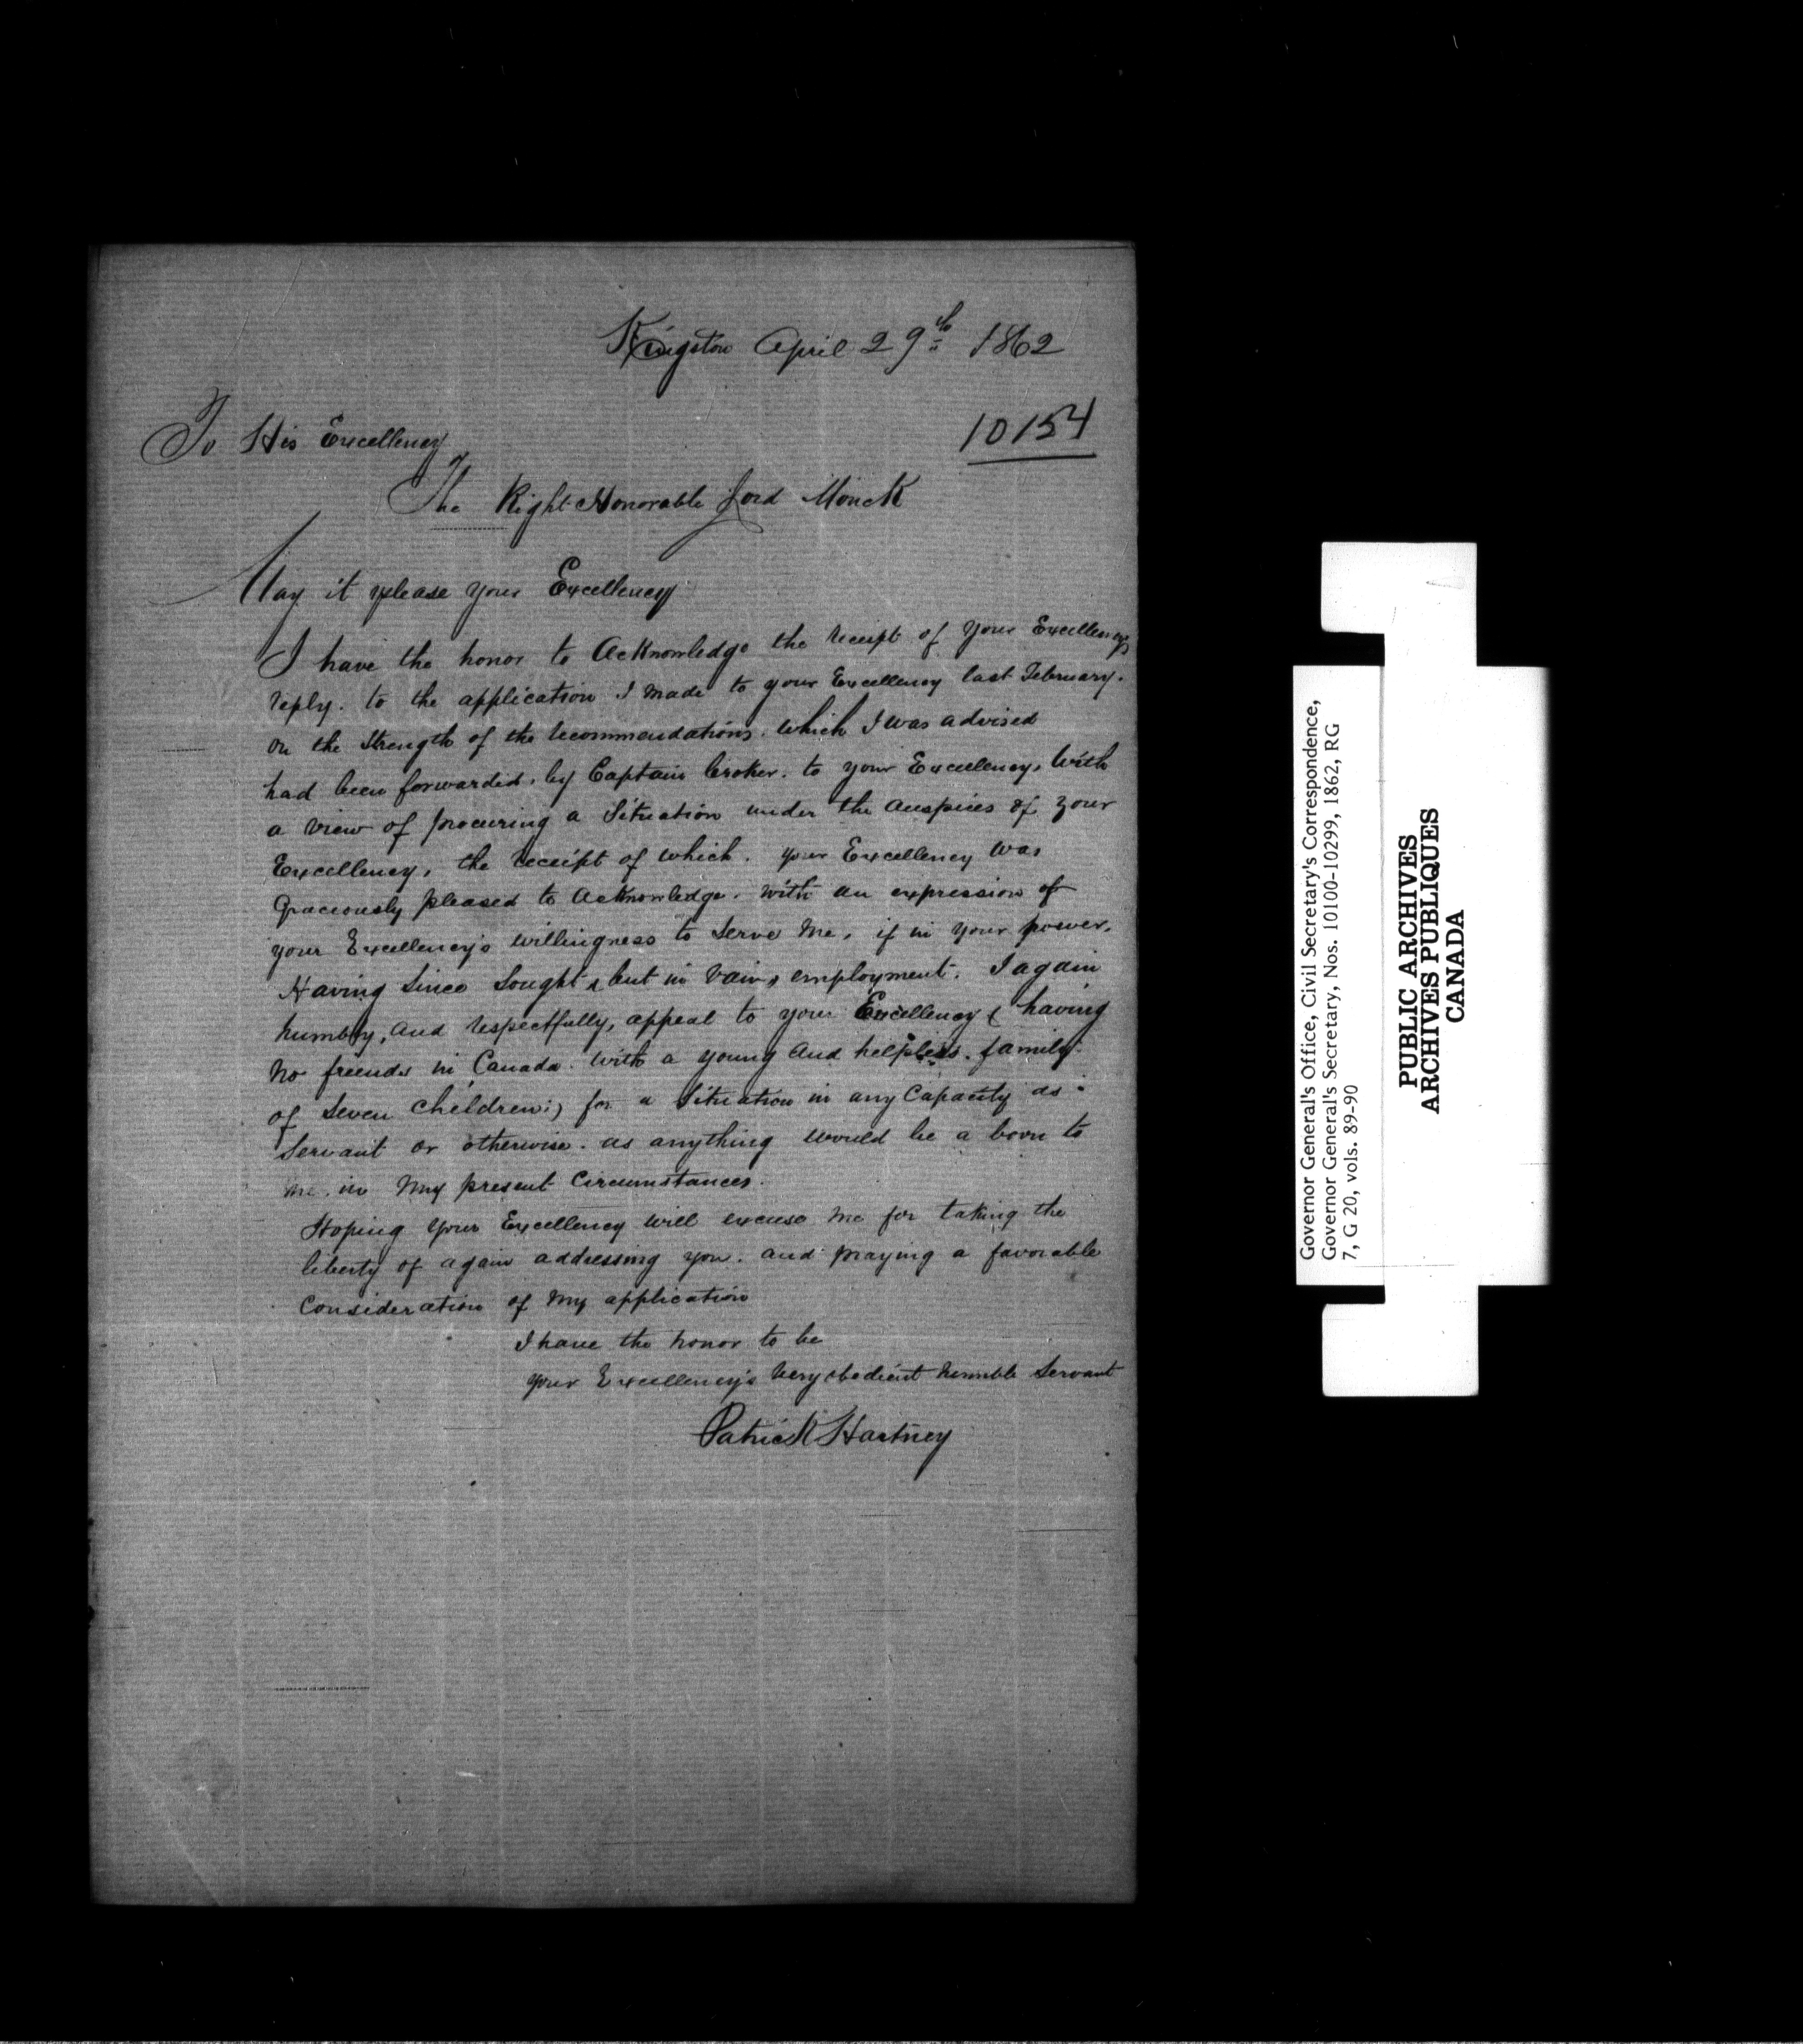 Kingston April 29th 1862
10154
To His Excellency
The Right Honorable Lord Monck
May it please your Excellency
I have the honor to Acknowledge the receipt of your Excellencys
reply. to the application I made to your Excellency last February.
on the strength of the recommendations. which I was advised
had been forwarded. by Captain Croker. to your Excellency, with
a view of procuring a Situation under the auspices of your
Excellency, the receipt of which. your Excellency was
Graciously pleased to Acknowledge. with an expression of
your Excellency's willingness to serve me, if in your power.
Having since sought, but in vain, employment. I again
humbly, and respectfully, appeal to your Excellency (having
no friends in Canada. with a young and helpless. family.
of seven children;) for a situation in any Capacity as
servant or otherwise. as anything would be a boon to
me. in my present Circumstances.
Hoping your Excellency will excuse me for taking the
liberty of again addressing you. and praying a favorable
Consideration of my application
I have the honor to be
your Excellency's very obedient humble Servant
Patrick Hartney
Governor General's Office, Civil Secretary's Correspondence,
Governor General's Secretary, Nos. 10100-10299, 1862, RG
7, G 20, vols. 89-90
PUBLIC ARCHIVES
ARCHIVES PUBLIQUES
CANADA